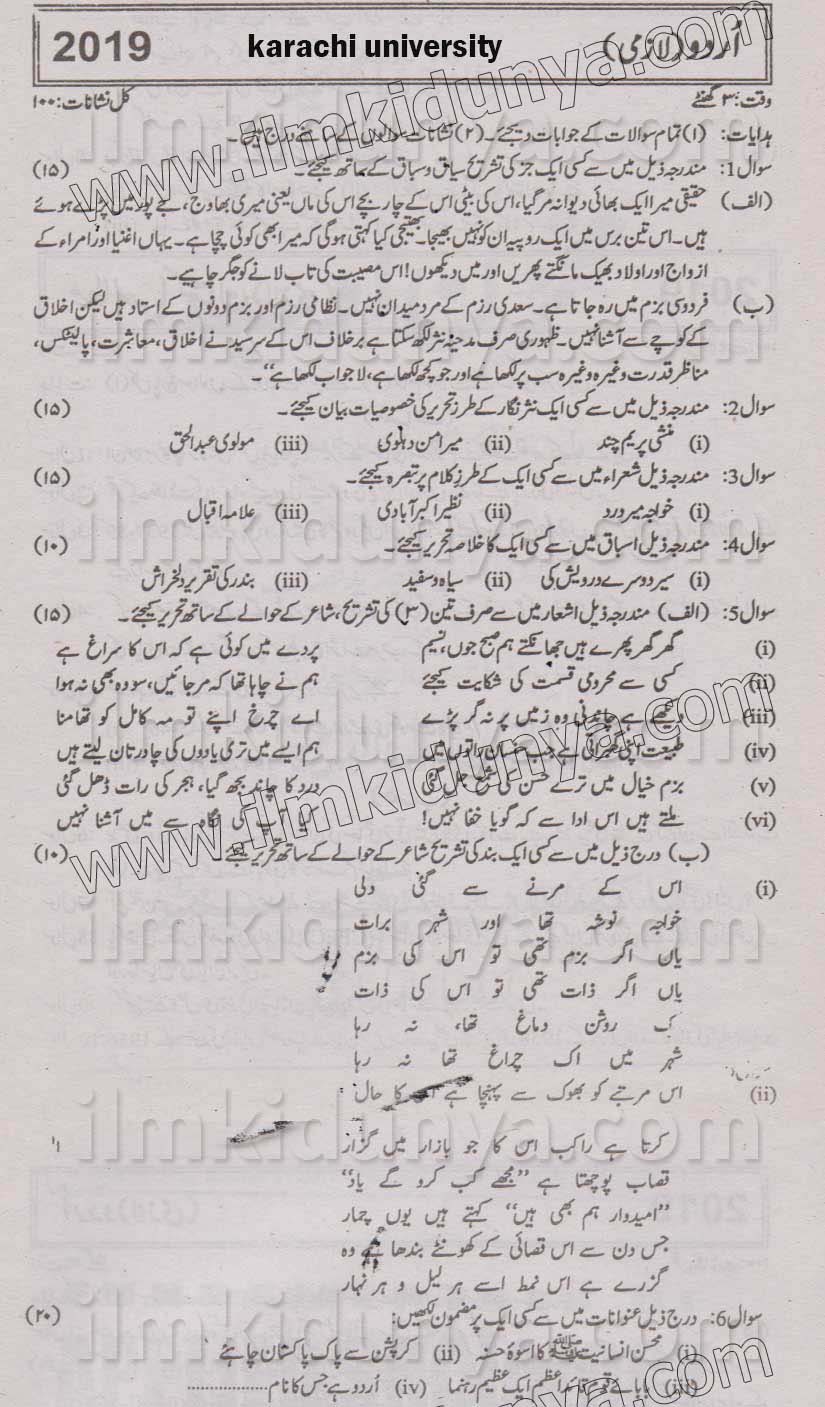 اُردو (لازمی) karachi university 2019
وقت: ۳ گھنٹے کل نشانات: ۱۰۰
ہدایات: (۱) تمام سوالات کے جوابات دیجئے۔ (۲) نشانات سوالوں کے سامنے درج ہیں۔
سوال 1: مندرجہ ذیل میں سے کسی ایک جز کی تشریح سیاق و سباق کے ساتھ کیجئے۔ (۱۵)
(الف) حقیقی میرا ایک بھائی دیوانہ مر گیا، اس کی بیٹی اس کے چار بچے اس کی ماں یعنی میری بھاوج، جے پور میں پڑے ہوئے
ہیں۔ اس تین برس میں ایک روپیہ ان کو نہیں بھیجا۔ بھتیجی کیا کہتی ہوگی کہ میرا بھی کوئی چچا ہے۔ یہاں اغنیا اور امراء کے
ازواج اور اولاد بھیک مانگتے پھریں اور میں دیکھوں! اس مصیبت کی تاب لانے کو جگر چاہیے۔
(ب) فردوسی بزم میں رہ جاتا ہے۔ سعدی رزم کے مرد میدان نہیں۔ نظامی رزم اور بزم دونوں کے استاد ہیں لیکن اخلاق
کے کوچے سے آشنا نہیں۔ ظہوری صرف مدحیہ نثر لکھ سکتا ہے برخلاف اس کے سرسید نے اخلاق، معاشرت، پالیٹکس،
مناظر قدرت وغیرہ وغیرہ سب پر لکھا ہے اور جو کچھ لکھا ہے، لاجواب لکھا ہے“۔
سوال 2: مندرجہ ذیل میں سے کسی ایک نثر نگار کے طرز تحریر کی خصوصیات بیان کیجئے۔ (۱۵)
(i) منشی پریم چند (ii) میر امن دہلوی (iii) مولوی عبدالحق
سوال 3: مندرجہ ذیل شعراء میں سے کسی ایک کے طرزِ کلام پر تبصرہ کیجئے۔ (۱۵)
(i) خواجہ میر درد (ii) نظیر اکبر آبادی (iii) علامہ اقبال
سوال 4: مندرجہ ذیل اسباق میں سے کسی ایک کا خلاصہ تحریر کیجئے۔ (۱۰)
(i) سیر دوسرے درویش کی (ii) سیاہ و سفید (iii) بندر کی تقریر دلخراش
سوال 5: (الف) مندرجہ ذیل اشعار میں سے صرف تین (۳) کی تشریح، شاعر کے حوالے کے ساتھ تحریر کیجئے۔ (۱۵)
(i) گھر گھر پھرے ہیں جھانکتے ہم صبح جوں، نسیم پردے میں کوئی ہے کہ اس کا سراغ ہے
(ii) کس سے محرومی قسمت کی شکایت کیجئے ہم نے چاہا تھا کہ مر جائیں، سو وہ بھی نہ ہوا
(iii) دیکھے ہے چاندنی وہ زمیں پر نہ گر پڑے اے چرخ اپنے تو مہ کامل کو تھامنا
(iv) طبیعت اپنی گھبراتی ہے جب سنسان راتوں میں ہم ایسے میں تری یادوں کی چادر تان لیتے ہیں
(v) بزم خیال میں ترے حسن کی شمع جل گئی درد کا چاند بجھ گیا، ہجر کی رات ڈھل گئی
(vi) ملتے ہیں اس ادا سے کہ گویا خفا نہیں! کیا آپ کی نگاہ سے میں آشنا نہیں
(ب) درج ذیل میں سے کسی ایک بند کی تشریح شاعر کے حوالے کے ساتھ تحریر کیجئے۔ (۱۰)
(i) اس کے مرنے سے گئی دلی
خواجہ نوشہ تھا اور شہر برات
یاں اگر بزم تھی تو اس کی بزم
یاں اگر ذات تھی تو اس کی ذات
روشن دماغ تھا، نہ رہا
شہر میں اک چراغ تھا نہ رہا
(ii) اس مرتبے کو بھوک سے پہنچا ہے اس کا حال
کرتا ہے راکب اس کا جو بازار میں گزار
قصاب پوچھتا ہے ”مجھے کب کرو گے یاد“
”امیدوار ہم بھی ہیں“ کہتے ہیں یوں چمار
جس دن سے اس قصائی کے کھونٹے بندھا ہے وہ
گزرے ہے اس نمط اسے ہر لیل و ہر نہار
سوال 6: درج ذیل عنوانات میں سے کسی ایک پر مضمون لکھیں: (۲۰)
(i) محسن انسانیت ﷺ کا اسوۂ حسنہ (ii) کرپشن سے پاک پاکستان چاہئے
(iii) بابائے قوم قائد اعظم ایک عظیم رہنما (iv) اُردو ہے جس کا نام ..................
www.ilmkidunya.com
ilmkidunya.com